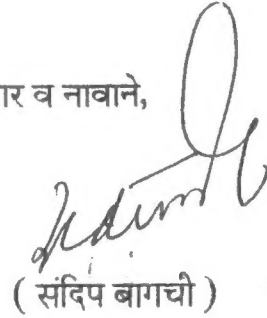 र व नावाने,
( संदिप बागची )